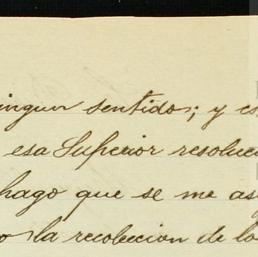 ningun sentido; y es
esa Superior resoluci
hago que se me as
la recoleccion de lo